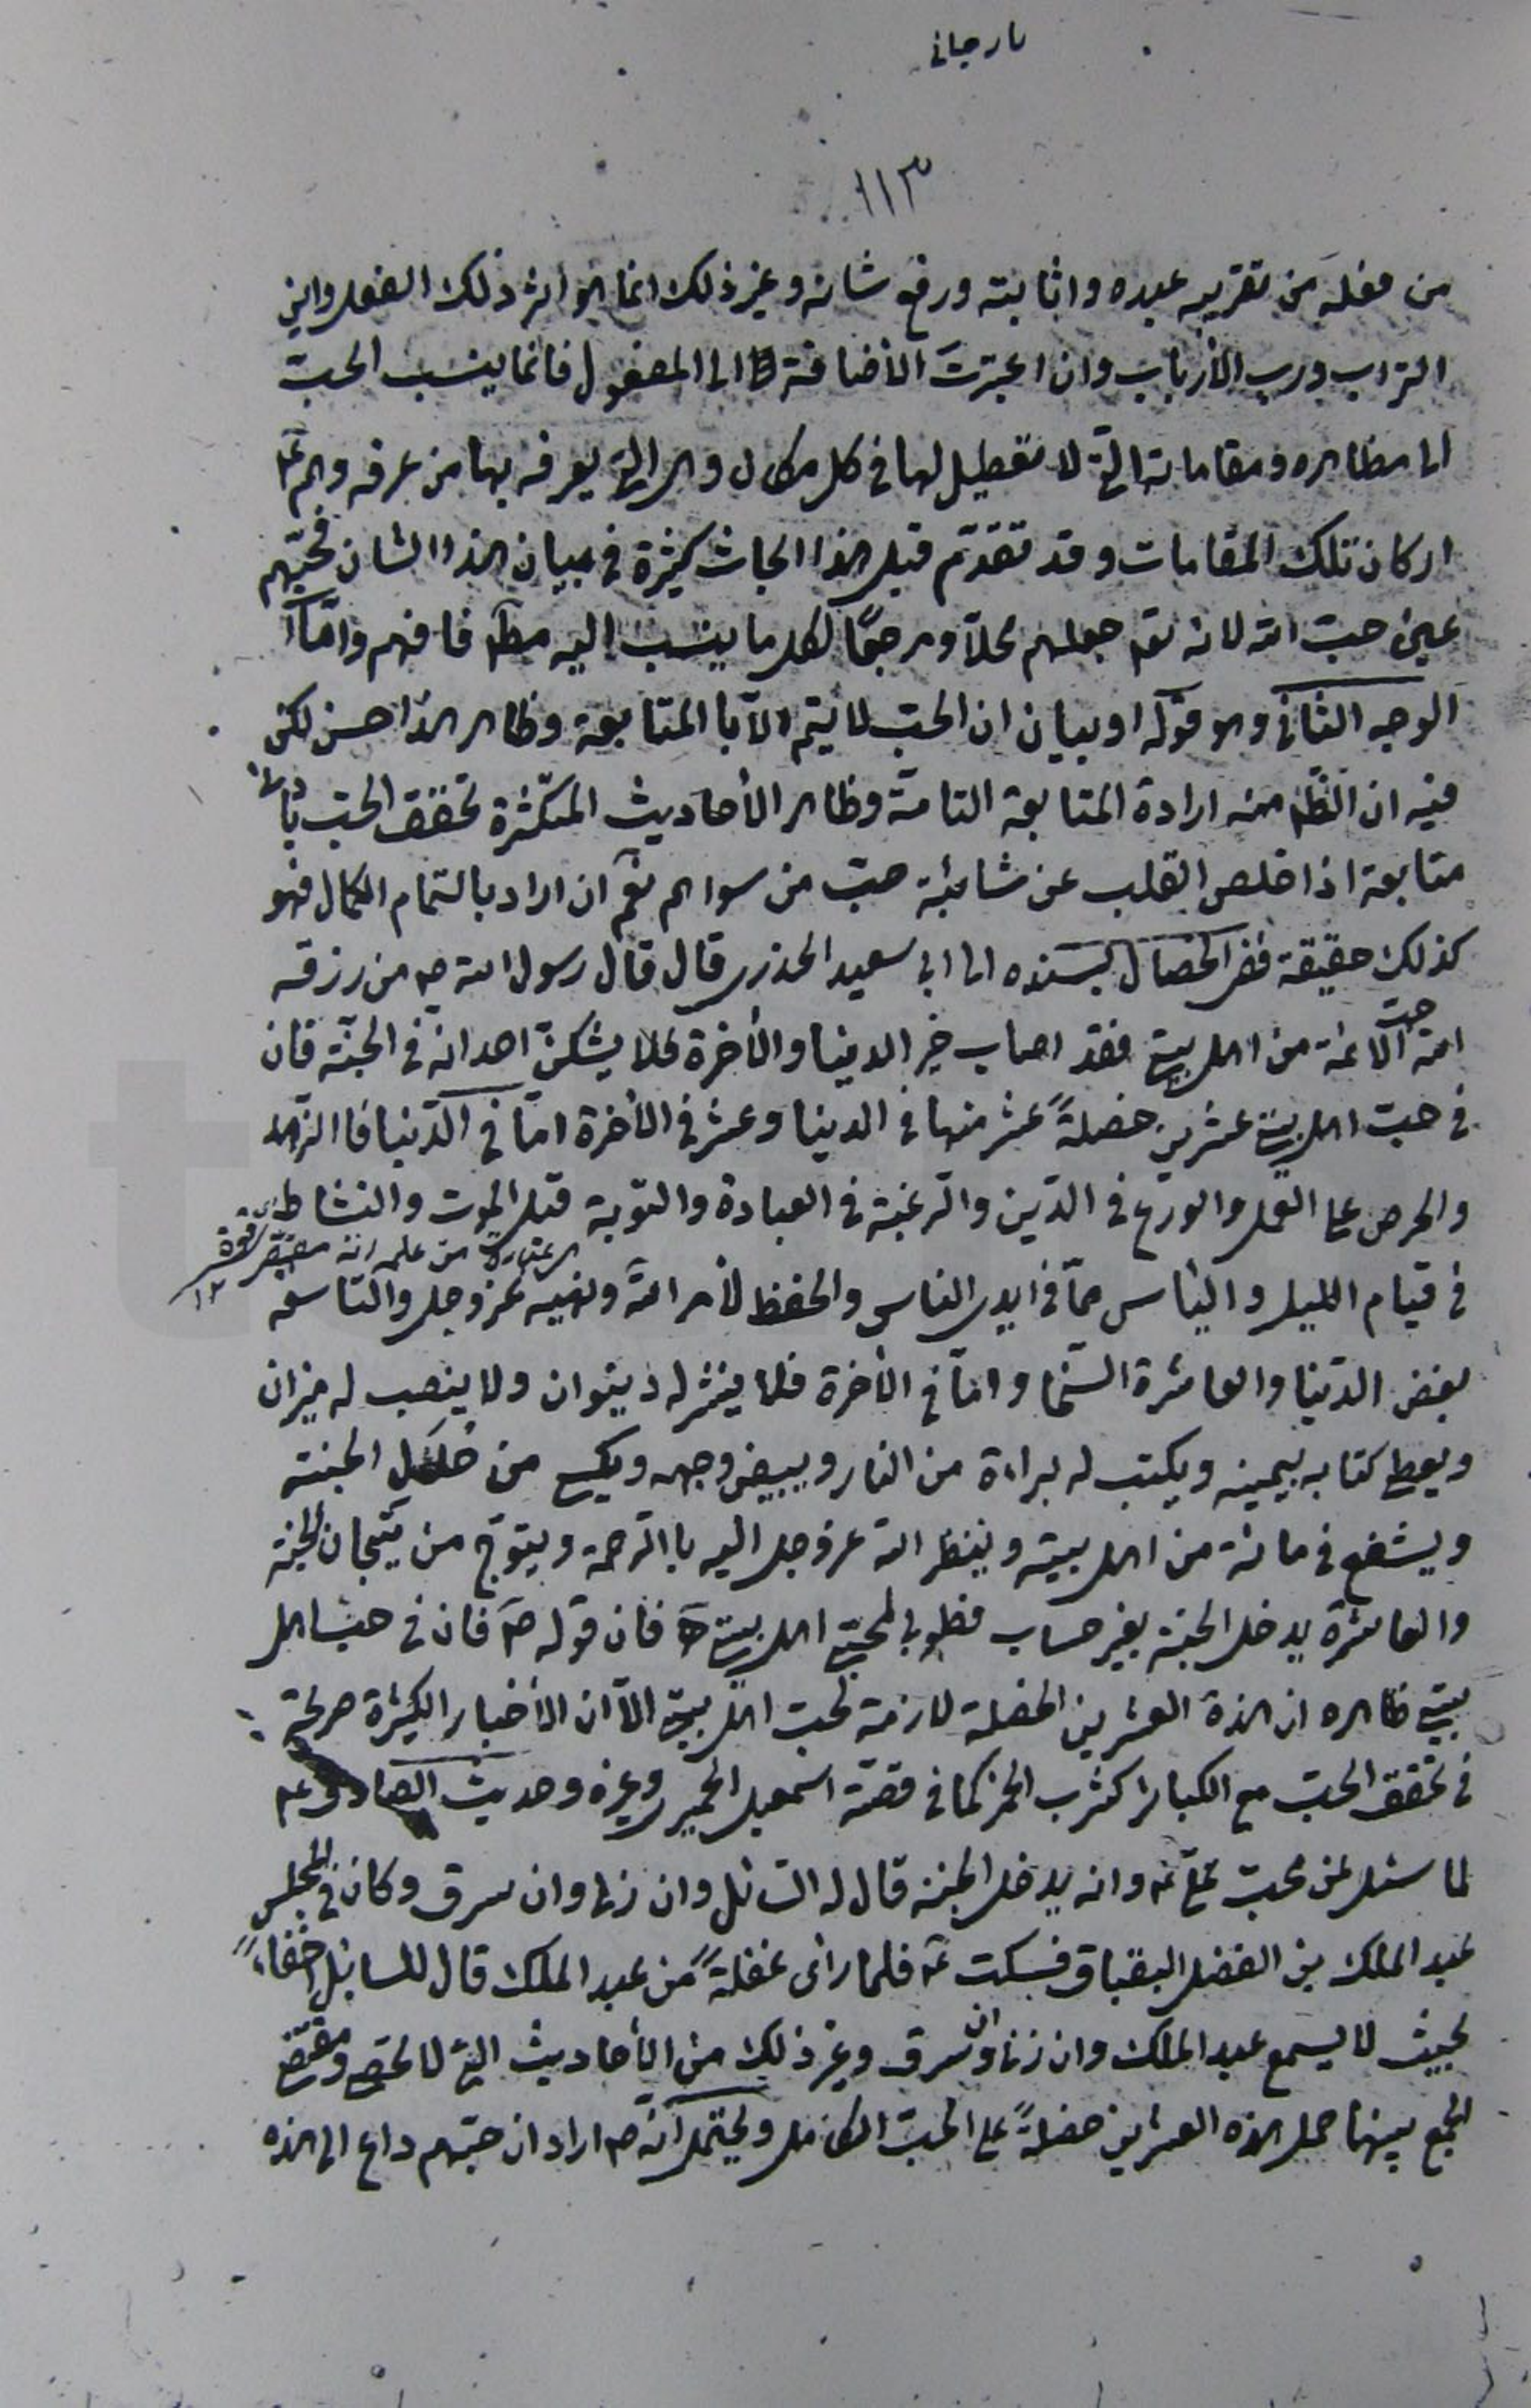 ١١٣
من فعله من تقريبه عبده واثابته ورفع شانه وغير ذلك انما هو اثر ذلك الفعل واين
التراب ورب الأرباب وان اعتبرت الأضافة الى المفعول فانما ينسب الحبّ
الى مظاهره ومقاماته التي لا تعطيل لها في كل مكان وهى التي يعرفه بها من عرفه وهم ع
اركان تلك المقامات وقد تقدّم قبل هذا ابحاث كثيرة في بيان هذا الشان فحبّهم
عين حبّ الله لانه تعم جعلهم محلّاً ومرجعًا لكل ما ينسب اليه مطلقا فافهم وامّا
الوجه الثاني وهو قوله او بيان ان الحبّ لا يتم الّا با المتابعة وظاهر هذا حسن لكن
فيه ان الظم منه ارادة المتابعة التامّة وظاهر الأحاديث المتكثرة تحقق الحبّ بادنى
متابعة اذا خلص القلب عن شائبة حبّ من سواهم نعم ان اراد بالتمام الكمال فهو
كذلك حقيقة ففى الخصال بسنده الى ابى سعيد الخدرى قال قال رسول الله ص من رزقه
الله حبّ الائمة من اهل بيتي فقد اصاب خير الدنيا والأخرة فلا يشكنّ احد انه في الجنّة فان
في حبّ اهل بيتي عشرين خصلةً عشر منها في الدنيا وعشر في الأخرة امّا في الدّنيا فا الزهد
والحرص على العمل والورع في الدّين والرغبة في العبادة والتوبة قبل الموت والنشاط
في قيام الليل واليأس ممّا في ايدى الناس والحفظ لأمر الله ونهيه عزوجل والتاسعة
بغض الدّنيا والعاشرة السّخا وامّا في الأخرة فلا ينشر له ديوان ولا ينصب له ميزان
ويعطى كتابه بيمينه ويكتب له براءة من النار ويبيض وجهه ويكسى من حلل الجنة
ويشفع في مائة من اهل بيته وينظر الله عزوجل اليه با الرحمة ويتوّج من تيجان الجنة
والعاشرة يدخل الجنة بغير حساب فطوبى لمحبّى اهل بيتي فان قوله ص فان في حبّ اهل
بيتي ظاهره ان هذه العشرين الخصلة لازمة لحب اهل بيتي الّا ان الأخبار الكثيرة صريحة
في تحقق الحبّ مع الكبائر كشرب الخمر كما في قصّة اسمعيل الحميرى وغيره وحديث الصادق ع
لما سئل عن محبّ علىّ ع وانه يدخل الجنة قال له السّائل وان زنا وان سرق وكان في المجلس
عبد الملك بن الفضل البقباق فسكت ع فلما رأى غفلةً من عبد الملك قال للسائل اخفاءً
بحيث لا يسمع عبد الملك وان زنا وان سرق وغير ذلك من الأحاديث التي لا تحصى ومقتضى
الجمع بينها حمل هذه العشرين خصلةً على الحبّ الكامل ويحتمل انّه ص اراد ان حبّهم داع الى هذه